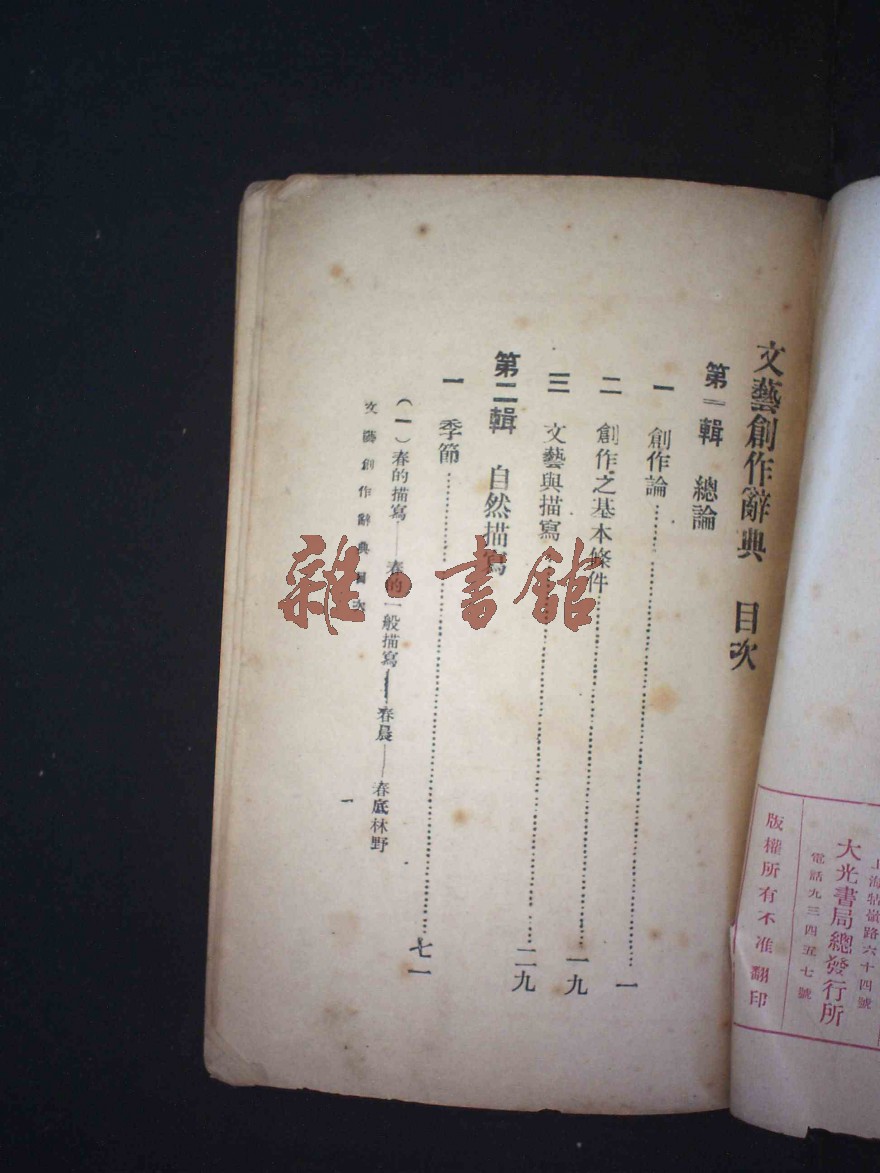 文藝創作辭典　目次
第一輯　總論
一　創作論……一
二　創作之基本條件……一九
三　文藝與描寫……二九
第二輯　自然描寫
一　季節……七一
（一）春的描寫——春的一般描寫——春晨——春底林野
文藝創作辭典目次
一
上海
路六十四號
大光書局總發行所
電話九三四五七號
版權所有不准翻印
雜·書館